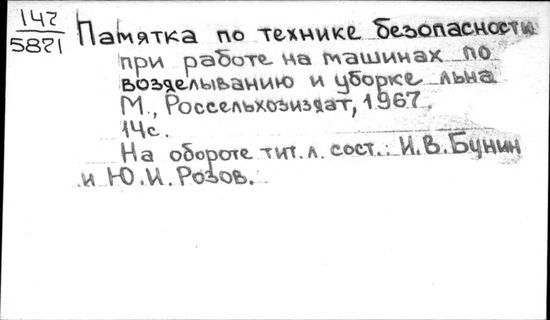 142
5821
Памятка по технике безопасности
при работе на машинах по
возделыванию и уборке льна
М., Россельхозиздат, 1967.
14с.
На обороте тит.л. сост.: И.В.Бунин
и Ю.И.Розов.